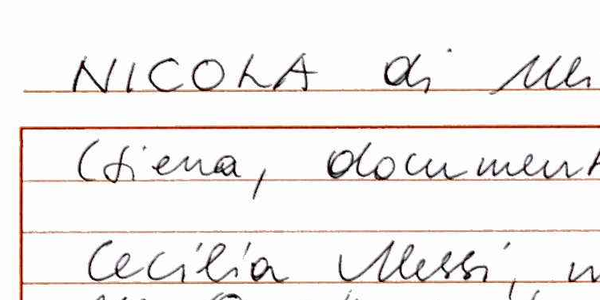 NICOLA di
(Siena, document
Cecilia Alessi,